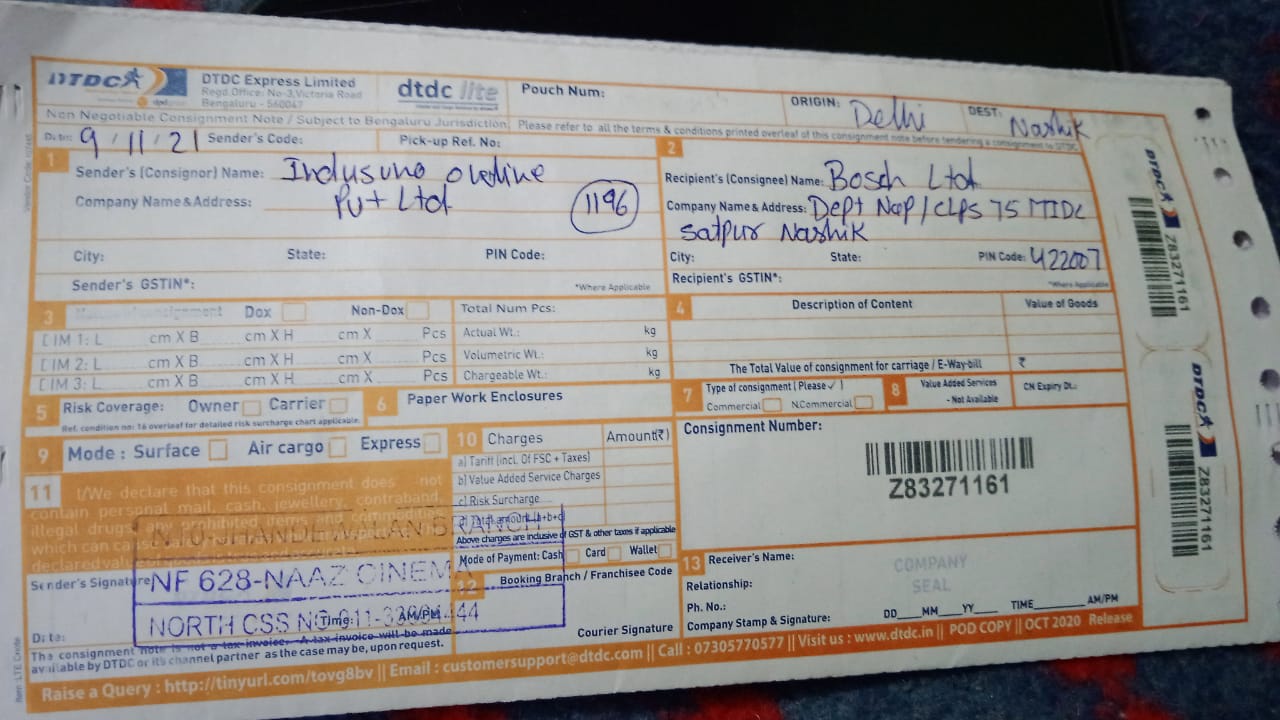 DTDC
DTDC Express Limited
Regd.Office: No-3,Victoria Road
Bengaluru - 560047
dtdc lite
Pouch Num:
ORIGIN: Delhi
DEST: Nashik
Non Negotiable Consignment Note / Subject to Bengaluru Jurisdiction, Please refer to all the terms & conditions printed overleaf of this consignment note before tendering a consignment to DTDC
Date: 9/11/21 Sender's Code: Pick-up Ref. No:
1 Sender's (Consignor) Name:
Company Name & Address: Pvt Ltd
1196
City: State: PIN Code:
Sender's GSTIN*: *Where Applicable
2
Recipient's (Consignee) Name: Bosch Ltd
Company Name & Address: Dept 75 MIDC
Satpur Nashik
City: State: PIN Code: 422007
Recipient's GSTIN*: *Where Applicable
3 Dox Non-Dox
DIM 1: L cm X B cm X H cm X Pcs
DIM 2: L cm X B cm X H cm X Pcs
DIM 3: L cm X B cm X H cm X Pcs
Total Num Pcs:
Actual Wt.: kg
Volumetric Wt.: kg
Chargeable Wt.: kg
4 Description of Content Value of Goods
The Total Value of consignment for carriage / E-Way-bill ₹
5 Risk Coverage: Owner Carrier
Ref. condition no: 16 overleaf for detailed risk surcharge chart applicable.
6 Paper Work Enclosures
7 Type of consignment ( Please ✓ )
Commercial N.Commercial
8 Value Added Services
- Not Available
CN Expiry Dt.:
9 Mode : Surface Air cargo Express
10 Charges Amount(₹)
a) Tariff (incl. Of FSC + Taxes)
b) Value Added Service Charges
c) Risk Surcharge
d) Total amount (a+b+c)
Above charges are inclusive of GST & other taxes if applicable
Mode of Payment: Cash Card Wallet
11 I/We declare that this consignment does not
contain personal mail, cash, jewellery, contraband,
illegal drugs, any prohibited items and
which can
declared value
BRANCH
NF 628-NAAZ CINEMA
NORTH CSS NO
Sender's Signature
Date: Time: AM/PM
The consignment note is not a tax invoice. A tax invoice will be made
available by DTDC or its channel partner as the case may be, upon request.
12 Booking Branch / Franchisee Code
Courier Signature
Consignment Number:
Z83271161
13 Receiver's Name:
Relationship:
Ph. No.:
Company Stamp & Signature:
COMPANY
SEAL
DD MM YY TIME AM/PM
Raise a Query : http://tinyurl.com/tovg8bv || Email : customersupport@dtdc.com || Call : 07305770577 || Visit us : www.dtdc.in || POD COPY || OCT 2020 Release
DTDC
Z83271161
DTDC
Z83271161